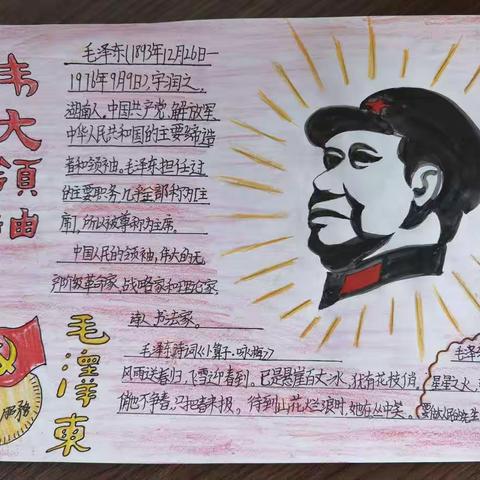 伟大領袖
毛泽东(1893年12月26日—
1976年9月9日),字润之,
湖南人。中国共产党、解放军
中华人民共和国的主要缔造
者和领袖。毛泽东担任过
的主要职务几乎全部称为主
席,所以被尊称为主席。
中国人民的领袖,伟大的无
产阶级革命家,战略家和理论家,
诗人,书法家。
毛澤東
毛泽东诗词《卜算子·咏梅》
风雨送春归,飞雪迎春到。已是悬崖百丈冰,犹有花枝俏。
俏也不争春,只把春来报。待到山花烂漫时,她在丛中笑。
毛泽东
星星之火,
要做人民的先生